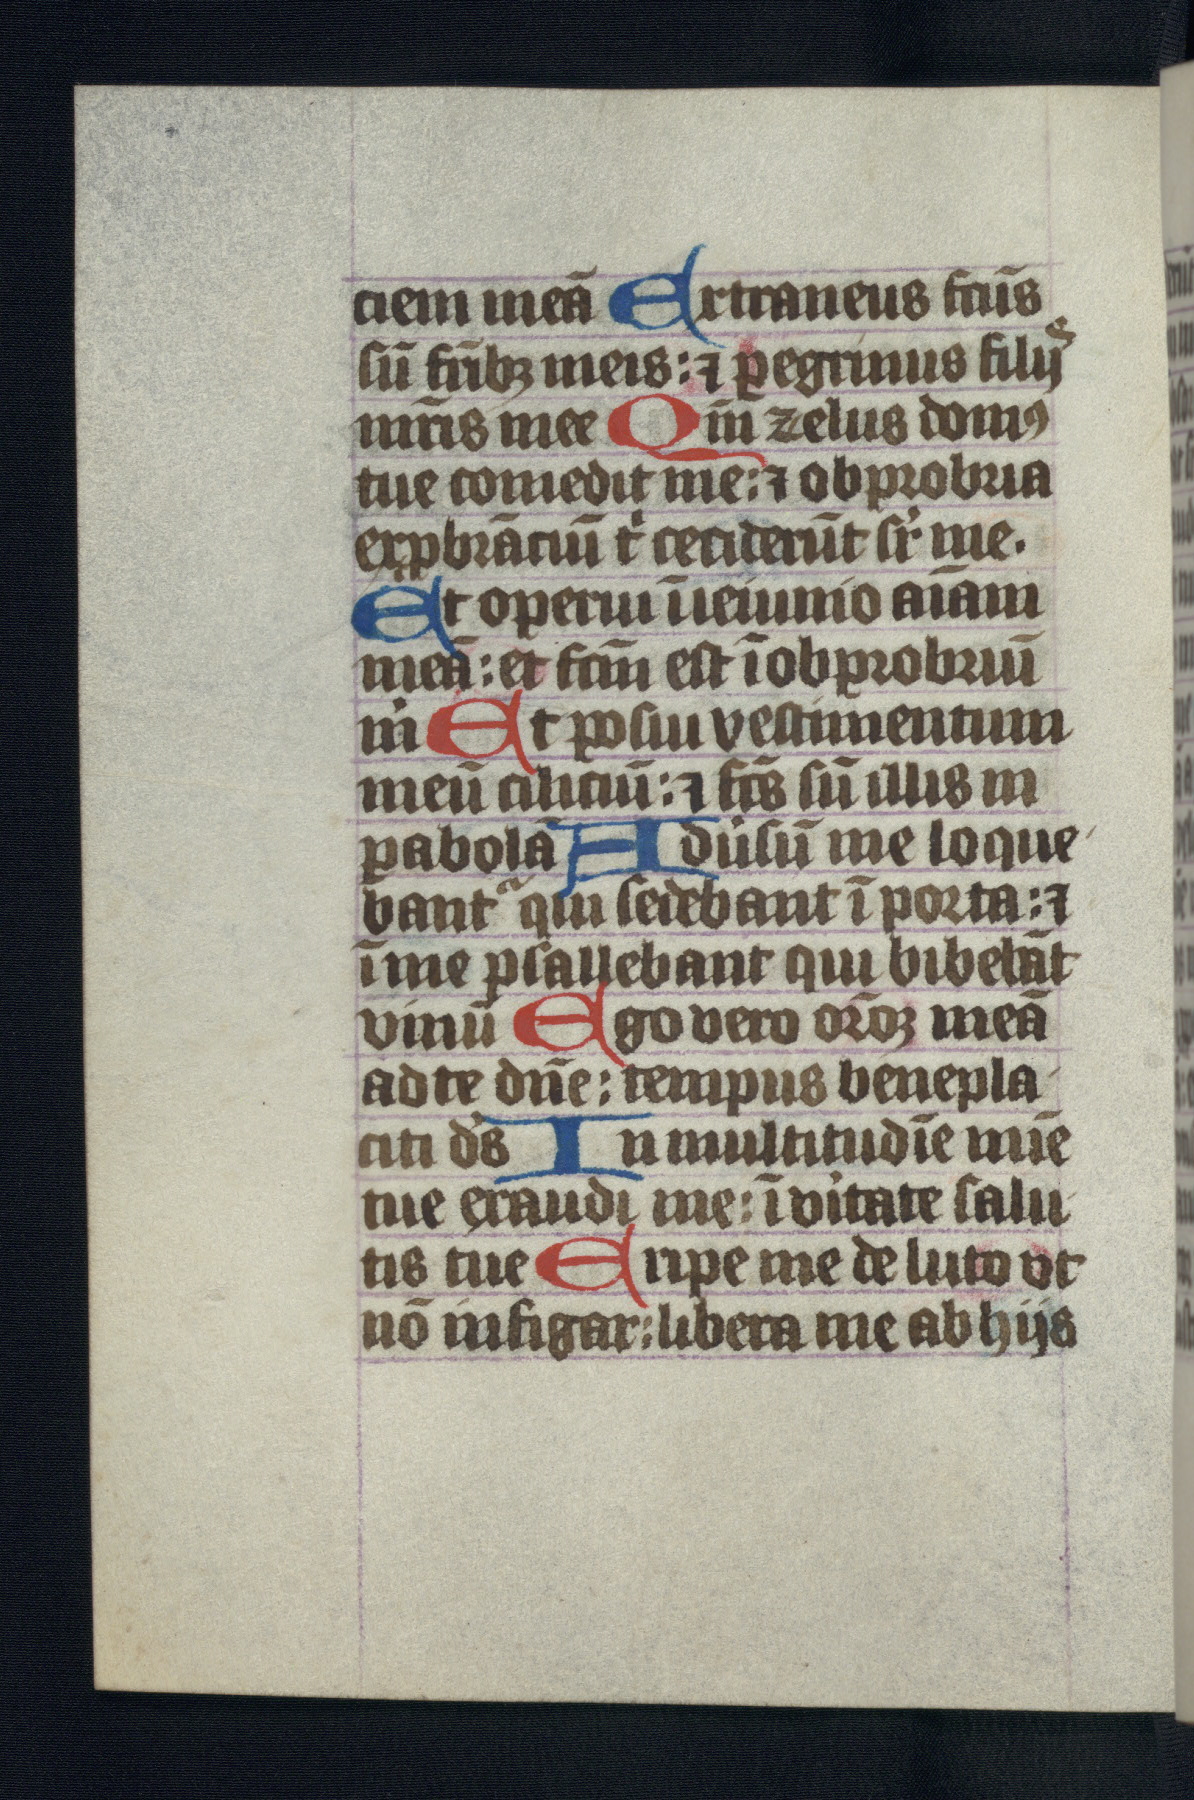 ciem meā Extraneus fcūs
sū frībꝫ meis: ⁊ ꝑegrinus filijs
mr̄is mee Qm̄ zelus domꝰ
tue comedit me: ⁊ obprobria
exꝓbrāciū tⁱ ceciderūt sr̄ me.
Et operui ī ieiunio aīam
meā: et fcm̄ est ī obprobriū
mⁱ Et posui vestimentum
meū ciliciū: ⁊ fcs̄ sū illis in
pabolā Adūsū me loque
bantᷣ qui sedebant ī porta: ⁊
ī me psallebant qui bibebāt
vinū Ego vero or̄oꝫ meā
ad te dn̄e: tempus benepla
citi ds̄ In multitudīe mīe
tue exaudi me: ī vītate salu
tis tue Eripe me de luto vt
nō infigar: libera me ab hijs